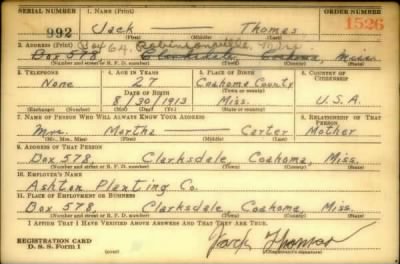 SERIAL NUMBER 1. NAME (Print) ORDER NUMBER
992 Jack Thomas 1526
(First) (Middle) (Last)
2. ADDRESS (Print) Box 64, Robinsonville, Miss.
Box 578 Clarksdale Coahoma, Miss.
(Number and street or R. F. D. number) (Town) (County) (State)
3. TELEPHONE 4. AGE IN YEARS 5. PLACE OF BIRTH 6. COUNTRY OF CITIZENSHIP
None 27 Coahoma County
DATE OF BIRTH (Town or county)
8/30/1913 Miss. U.S.A.
(Exchange) (Number) (Mo.) (Day) (Yr.) (State or country)
7. NAME OF PERSON WHO WILL ALWAYS KNOW YOUR ADDRESS 8. RELATIONSHIP OF THAT PERSON
Mrs. Martha — Carter Mother
(Mr., Mrs., Miss) (First) (Middle) (Last)
9. ADDRESS OF THAT PERSON
Box 578, Clarksdale, Coahoma, Miss.
(Number and street or R. F. D. number) (Town) (County) (State)
10. EMPLOYER'S NAME
Ashton Planting Co.
11. PLACE OF EMPLOYMENT OR BUSINESS
Box 578, Clarksdale, Coahoma, Miss.
(Number and street or R. F. D. number) (Town) (County) (State)
I AFFIRM THAT I HAVE VERIFIED ABOVE ANSWERS AND THAT THEY ARE TRUE.
REGISTRATION CARD
D. S. S. Form 1 Jack Thomas